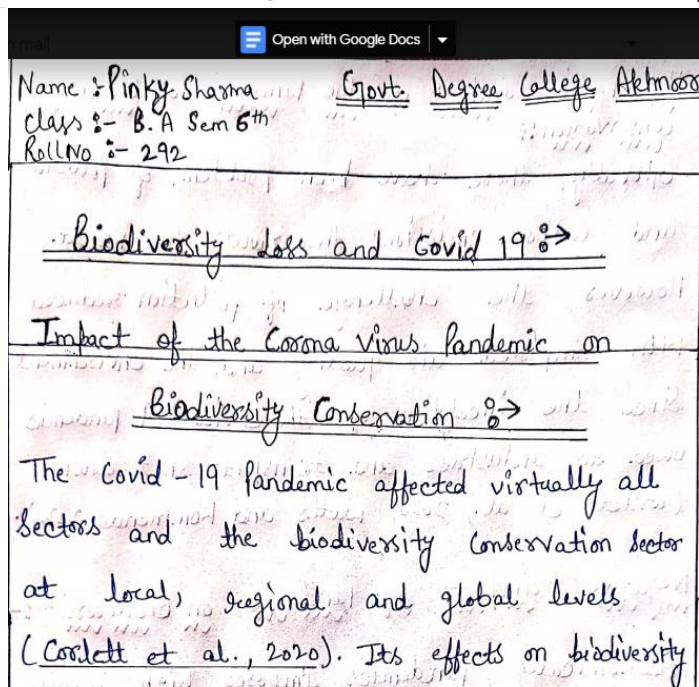 Open with Google Docs
Name :- Pinky Sharma Govt. Degree College Akhnoor
class :- B.A Sem 6th
Roll No :- 292
Biodiversity Loss and Covid 19 :→
Impact of the Corona Virus Pandemic on
Biodiversity Conservation :→
The Covid-19 Pandemic affected virtually all
Sectors and the biodiversity Conservation Sector
at local, regional and global levels
(Corlett et al., 2020). Its effects on biodiversity